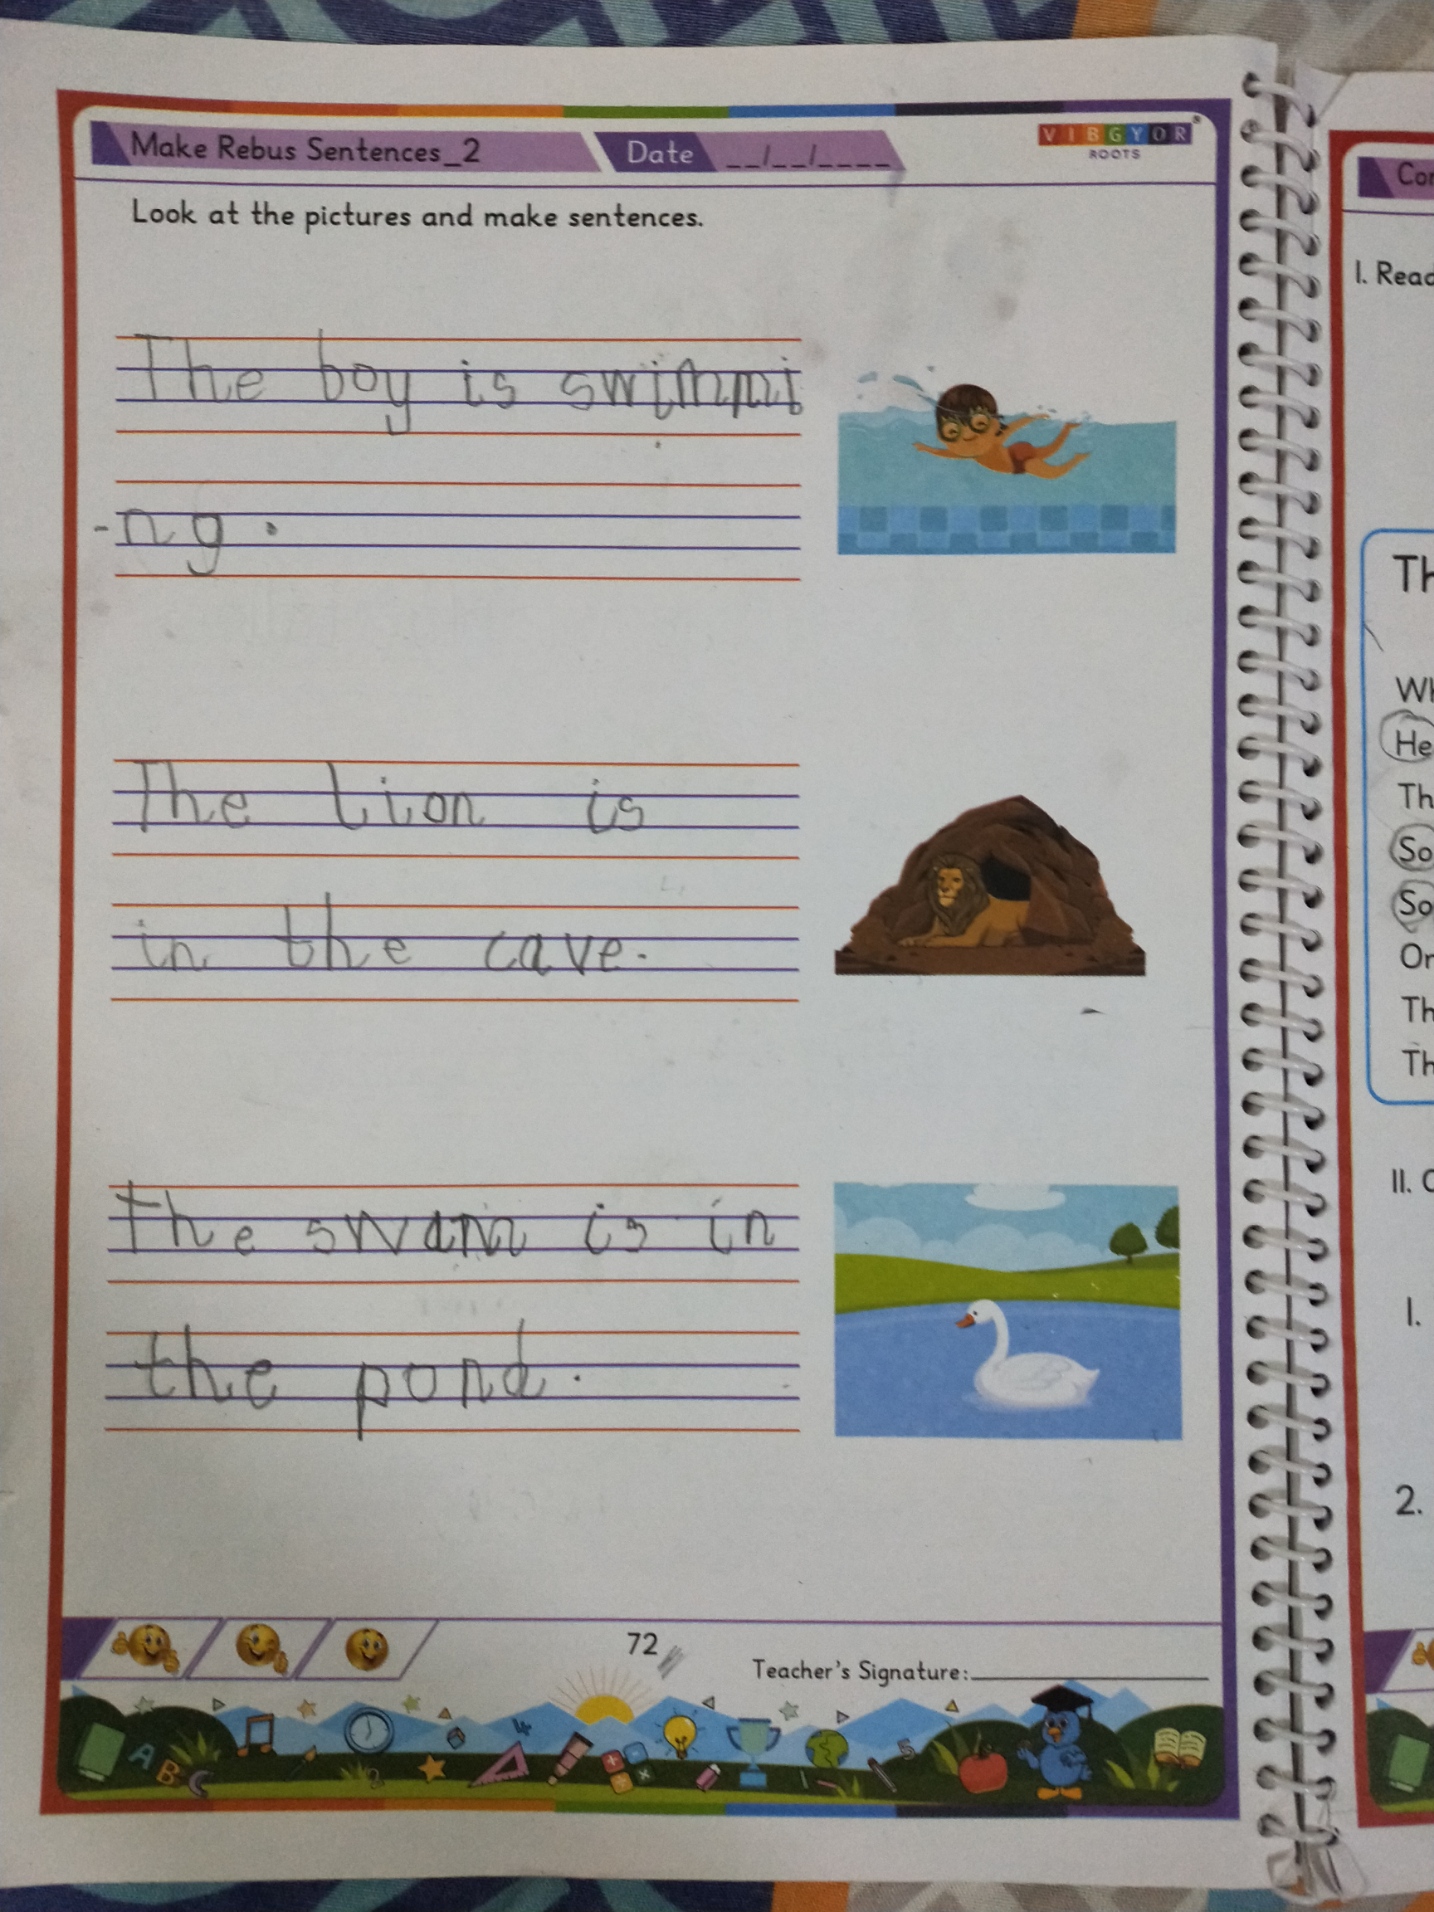 Make Rebus Sentences_2
Date __/__/____
VIBGYOR
ROOTS
Look at the pictures and make sentences.
The boy is swimmi
-ng.
The lion is
in the cave.
The swan is in
the pond.
72
Teacher's Signature:
I. Read
Th
Wh
He
Th
So
So
On
Th
Th
II. C
1.
2.